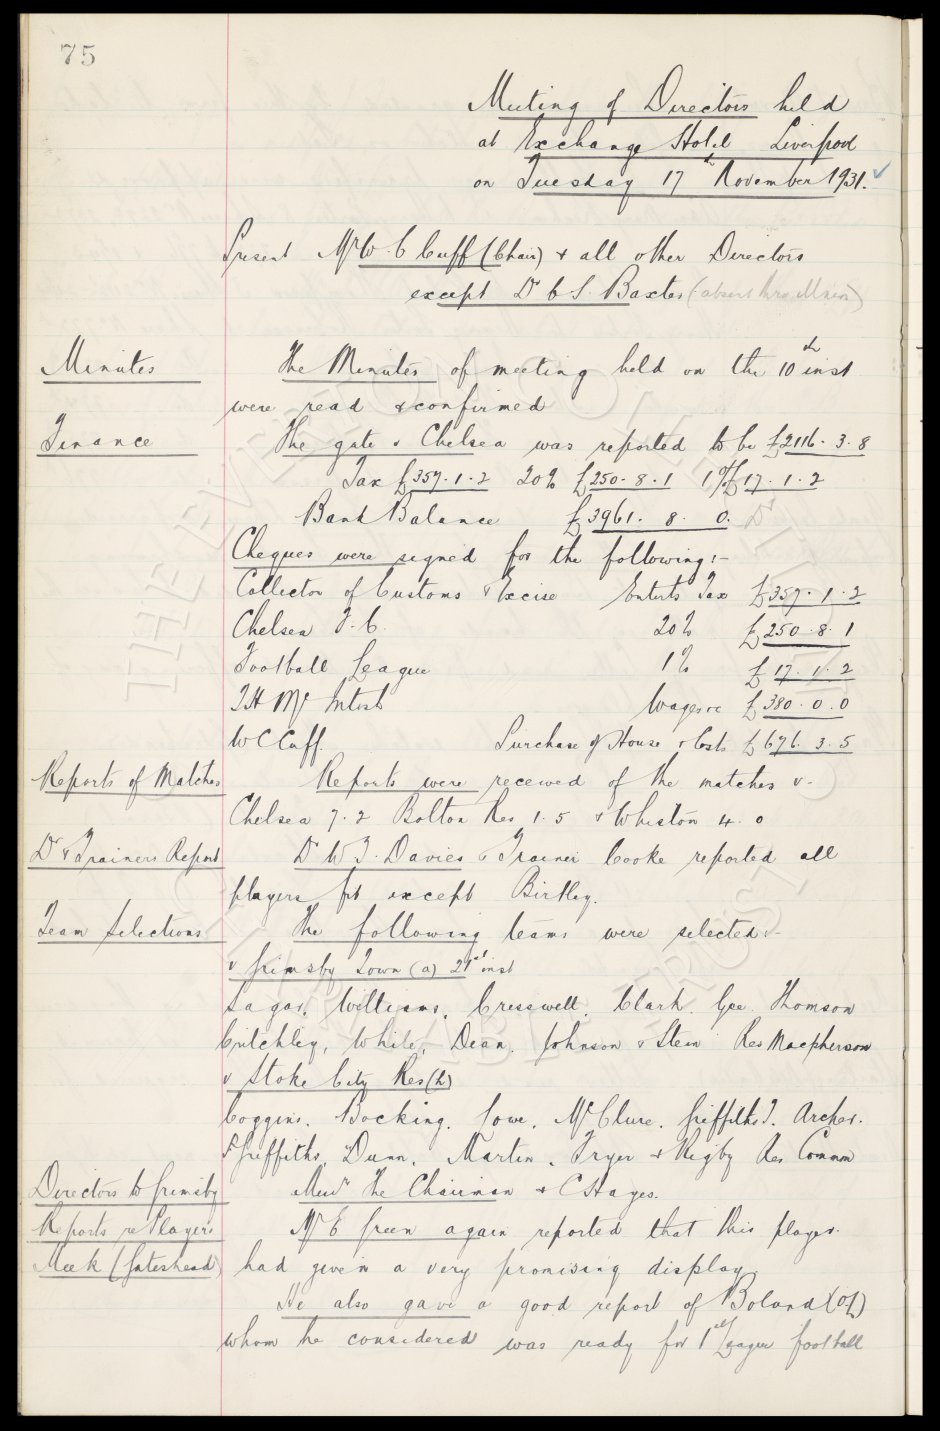 75
Meeting of Directors held
at Exchange Hotel Liverpool
on Tuesday 17th November 1931.
Present Mr W. C Cuff (Chair) & all other Directors
except Dr C S. Baxter (absent thro illness)
Minutes The Minutes of meeting held on the 10th inst
were read & confirmed
Finance The gate v Chelsea was reported to be £2116. 3. 8
Tax £357. 1. 2 20% £250. 8. 1 1% £17. 1. 2
Bank Balance £3961. 8. 0. Dr
Cheques were signed for the following:-
Collector of Customs & Excise Enterts Tax £357. 1. 2
Chelsea F. C. 20% £250. 8. 1
Football League 1% £17. 1. 2
T H Mc Intosh Wages &c £380. 0. 0
W C Cuff. Purchase of House & Costs £676. 3. 5
Reports of Matches Reports were received of the matches v.-
Chelsea 7. 2 Bolton Res 1. 5 & Whiston 4. 0
Dr & Trainers Report Dr W J. Davies & Trainer Cooke reported all
players fit except Birtley.
Team Selections The following teams were selected:-
v Grimsby Town (a) 21st inst
Sagar. Williams. Cresswell. Clark. Gee. Thomson
Critchley, White, Dean. Johnson & Stein Res Macpherson
v Stoke City Res (h)
Coggins. Bocking. Lowe. McClure. Griffiths T. Archer.
P Griffiths, Dunn. Martin. Fryer & Rigby Res Common
Directors to Grimsby Messrs The Chairman & C Hayes.
Reports re Players Mr E Green again reported that this player
Meek (Gateshead) had given a very promising display
He also gave a good report of Boland (OL)
whom he considered was ready for 1st League football
THE EVERTON COLLECTION
CHARITABLE TRUST